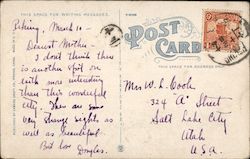 THIS SPACE FOR WRITING MESSAGES.
POST CARD
THIS SPACE FOR ADDRESS
Peking, March 10 -
Dearest Mother -
I don't think there is
another spot on
earth more interesting
than this wonderful
city. There are some
very strange sights as
well as beautiful.
Best love
Douglas.
Mrs W. L. Cook
324 "A" Street
Salt Lake City
Utah
U.S.A.